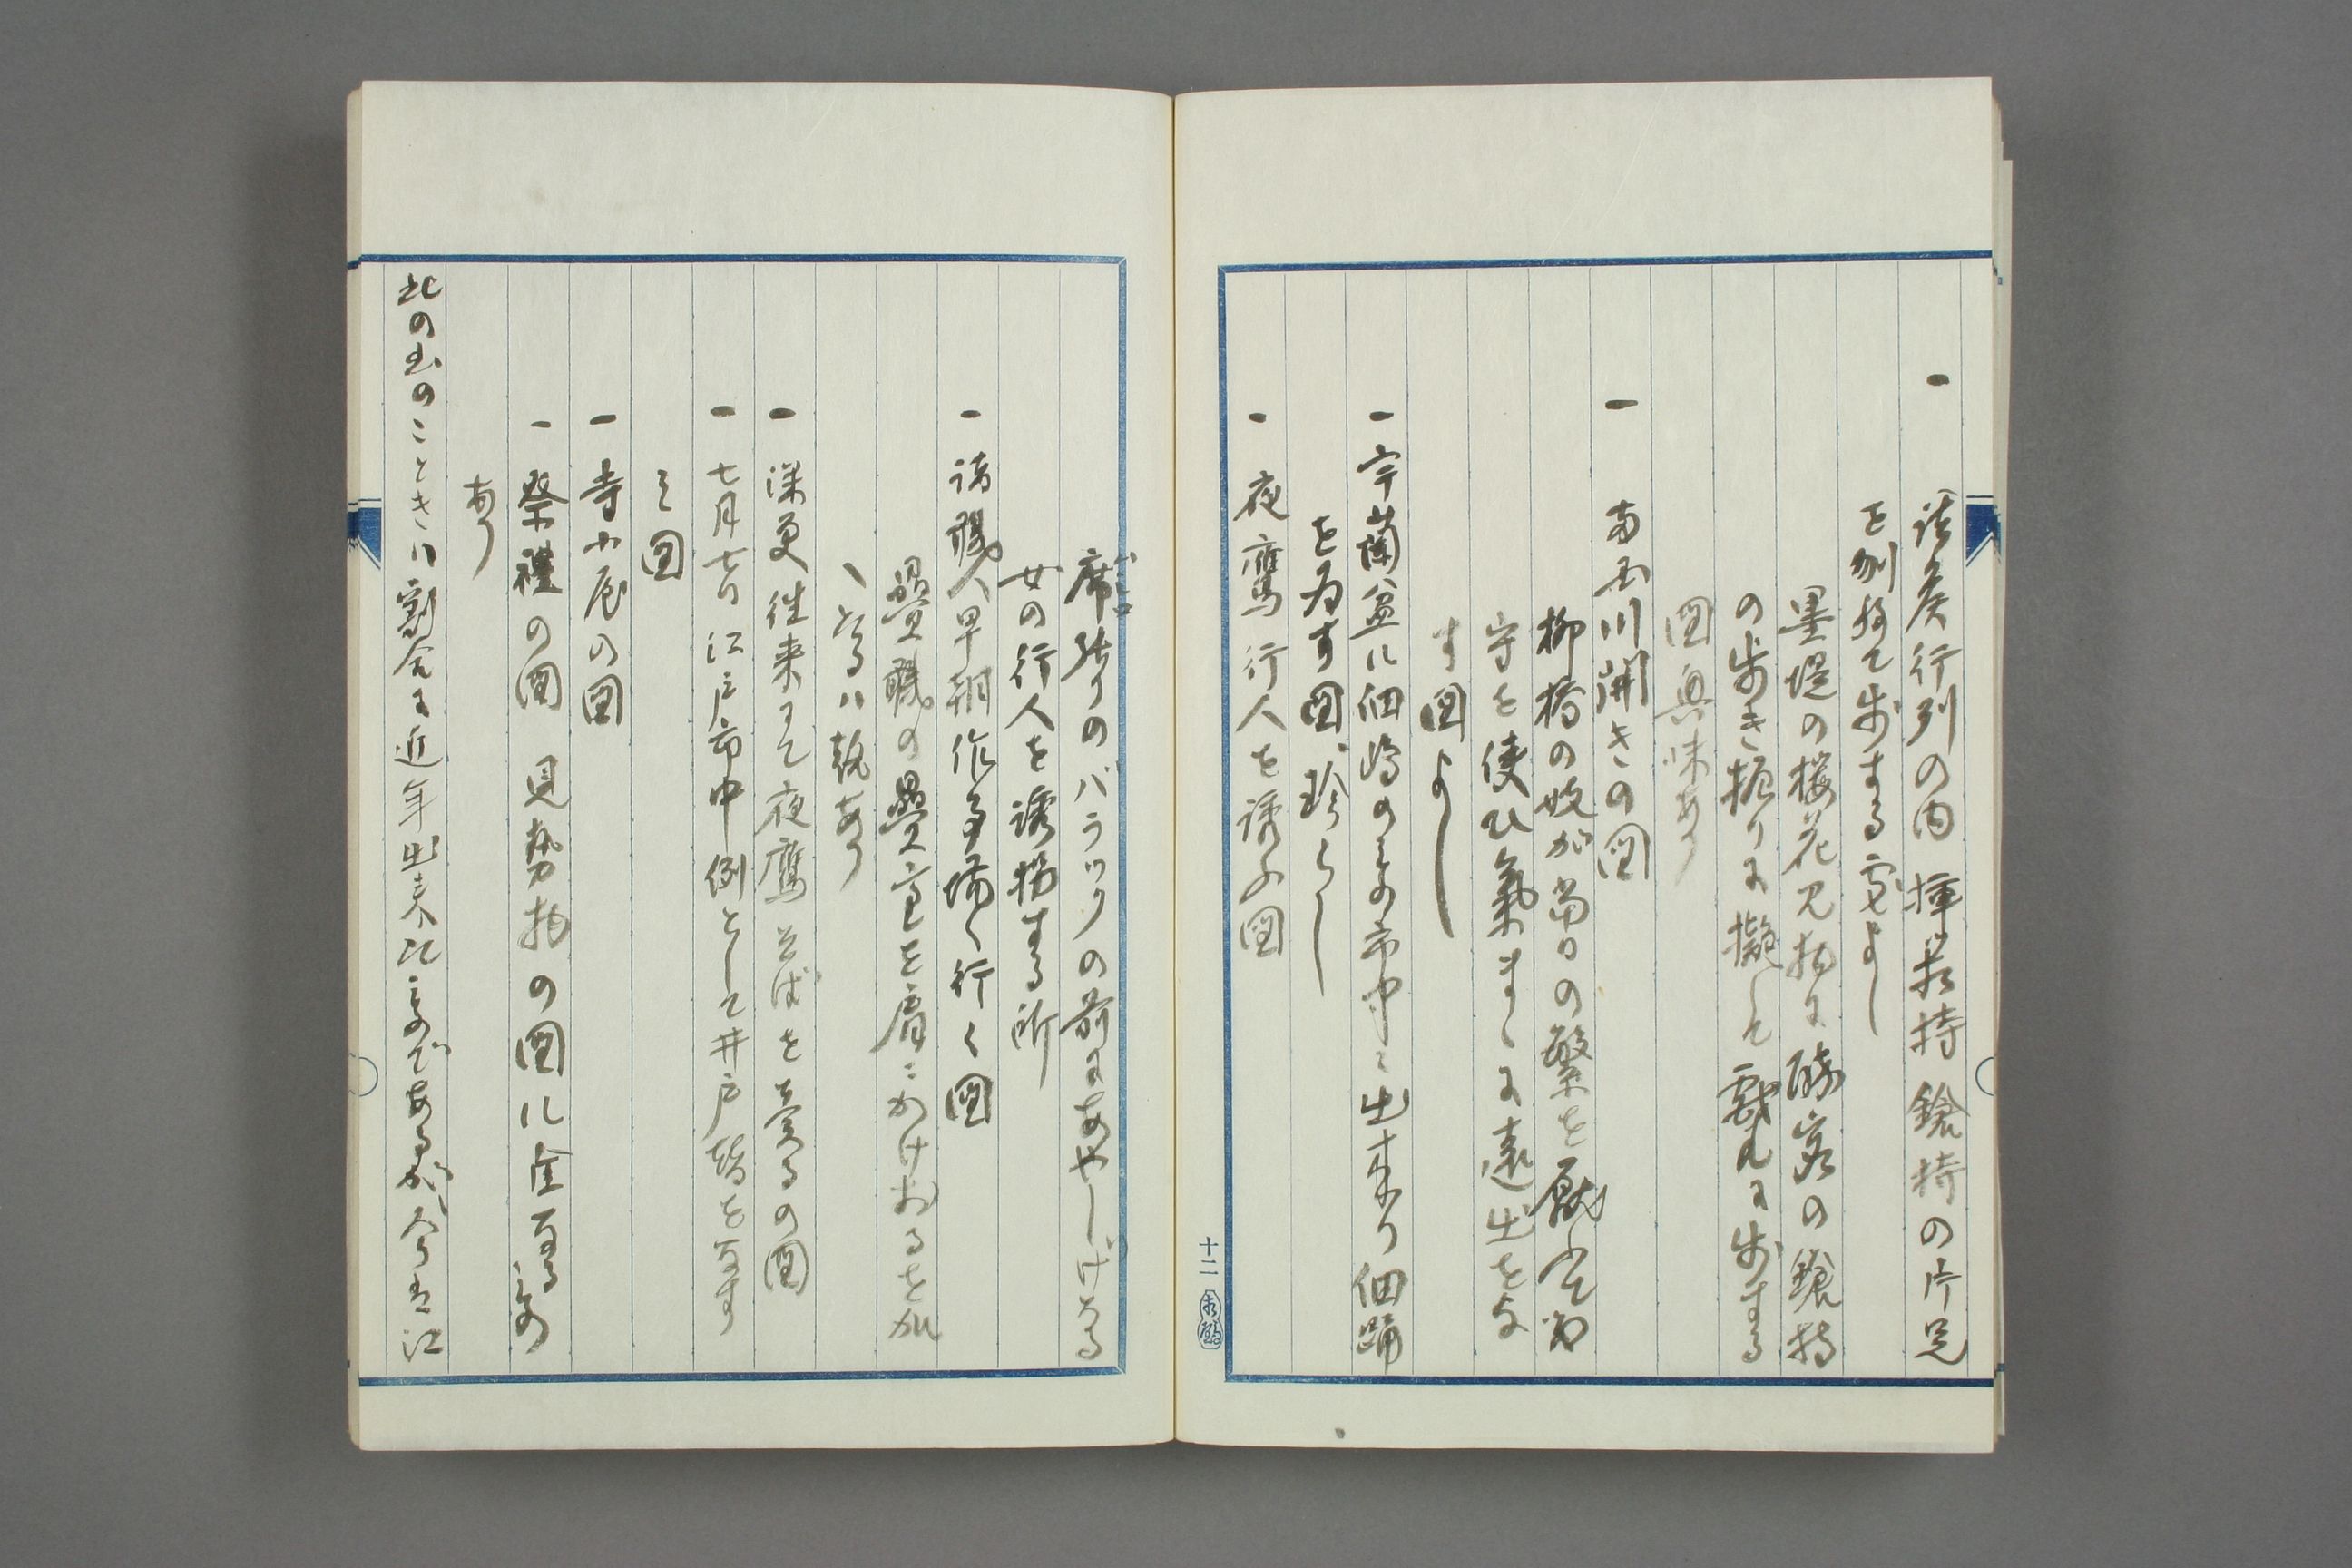 一 諸侯行列の内 挾箱持 鎗持の片足
を刎揚て歩する處よし
墨堤の桜花見抔に酔客の鎗持
の歩き振りに擬して戯れに歩する
図興味あり
一 両国川開きの図
柳橋の妓が当日の繁を厭ふて
守を使ひ氣まゝに遠出をな
す図よし
一 宇蘭盆に佃嶋のもの市中に出来り佃踊
を為す図 珍らし
一 夜鷹行人を誘ふ図
十二
席張りのバラックの前にあやしげなる
ムシロ
女の行人を誘拐する所
一 諸職人早朝作事場へ行く図
疊職の疊臺を肩にかけおるを加
へたるハ執あり
一 深更往来にて夜鷹そばを売るの図
一 七月七日江戸市中例として井戸替を為す
之図
一 寺小屋の図
一 祭禮の図 見勢物の図に金なるもの
あり
此の書のこときハ割合に近年出来たものであるが、今は江